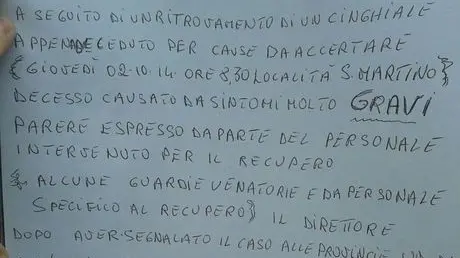 A SEGUITO DI UN RITROVAMENTO DI UN CINGHIALE
APPENA DECEDUTO PER CAUSE DA ACCERTARE
{GIOVEDÌ 02.10.14 ORE 8,30 LOCALITÀ S. MARTINO}
DECESSO CAUSATO DA SINTOMI MOLTO GRAVI
PARERE ESPRESSO DA PARTE DEL PERSONALE
INTERVENUTO PER IL RECUPERO
{ALCUNE GUARDIE VENATORIE E DA PERSONALE
SPECIFICO AL RECUPERO} IL DIRETTORE
DOPO AVER SEGNALATO IL CASO ALLE PROVINCIE